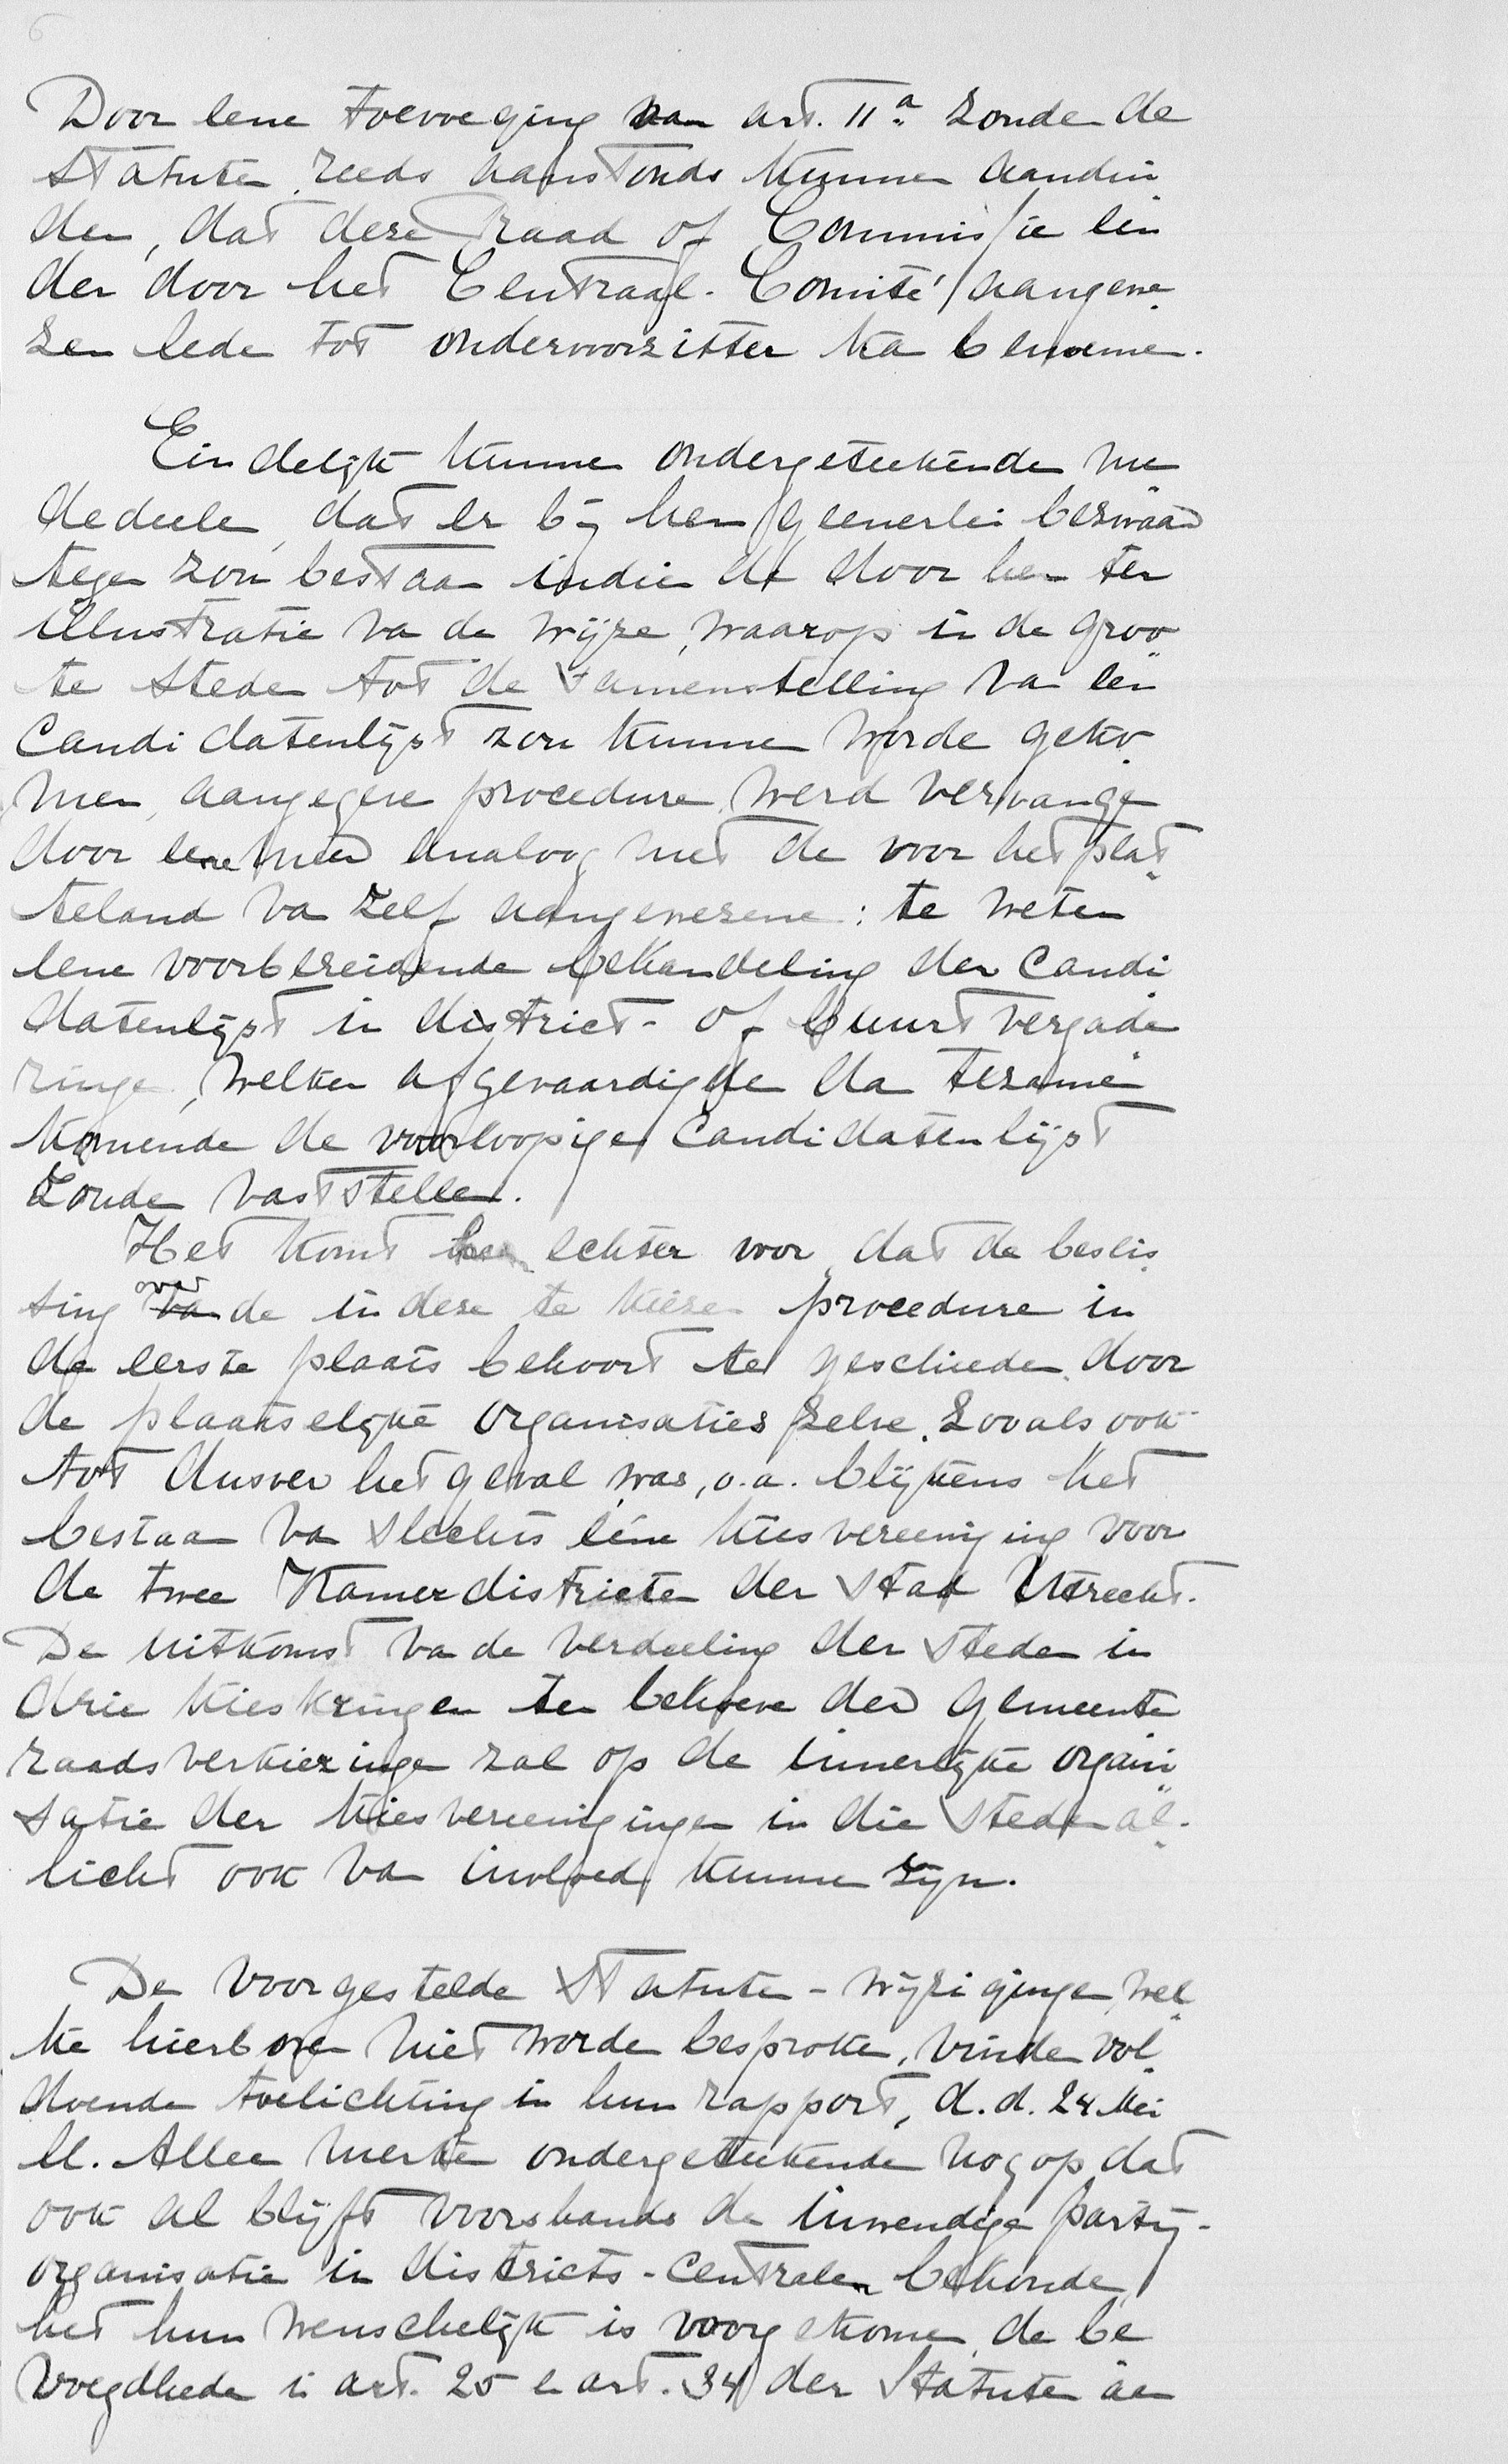 6
Door eene toevoeging van art. 11a. zouden de
statuten reeds aanstonds kunnen aandui
den, dat deze Raad of Commissie een
der door het Centraal-Comité aangewe
zen leden tot ondervoorzitter kan benoemen.
Eindelijk kunnen ondergeteekenden me
dedeelen, dat er bij hen geenerlei bezwaar
tegen zou bestaan indien de door hen ter
illustratie van de wijze, waarop in de groo
te steden tot de samenstelling van een
candidatenlijst zou kunnen worden geko
men, aangegeven procedure werd vervangen
door eene meer analoog met de voor het plat
teland van zelf aangewezene: te weten
eene voorbereidende behandeling der candi
datenlijst in district- of buurtvergade
ringen, welker afgevaardigden dan tezamen
komende de voorloopige candidatenlijst
zouden vaststellen.
Het komt hen echter voor, dat de beslis
sing over de in deze te kiezen procedure in
de eerste plaats behoort te geschieden door
de plaatselijke organisaties zelve, zooals ook
tot dusver het geval was, o.a. blijkens het
bestaan van slechts ééne kiesvereeniging voor
de twee Kamerdistricten der stad Utrecht.
De uitkomst van de verdeeling der steden in
drie kieskringen ten behoeve der gemeente
raadsverkiezingen zal op de innerlijke organi
satie der kiesvereenigingen in die steden al-
licht ook van invloed kunnen zijn.
De voorgestelde Statuten-wijzigingen, wel
ke hierboven niet worden besproken, vinden vol
doende toelichting in hun rapport, d.d. 24 Mei
ll. Alleen merken ondergeteekenden nog op dat
ook al blijft voorshands de inwendige partij-
organisatie in districts-centralen behouden,
het hun wenschelijk is voorgekomen, de be
voegdheden in art. 25 en art. 34 der Statuten aan